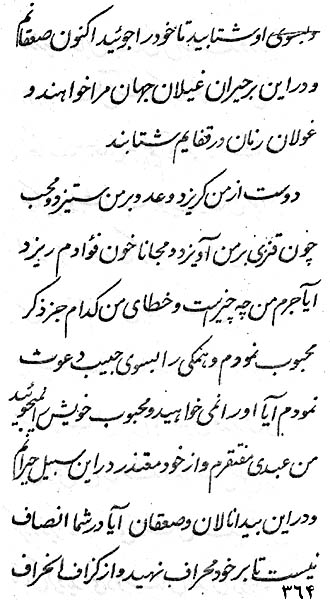 وبسوی او شتابید تا خود را جوئید اکنون صعقانم
و در این بر حیران غیلان جهان مرا خواهند و
غولان زمان در قفایم شتابند
دوست از من گریزد و عدو بر من ستیزد و محب
چون قزی بر من آویزد و مجانا خون فؤادم ریزد
آیا جرم من چه چیز است و خطای من کدام جز ذکر
محبوب نمودم و همگی را بسوی حبیب دعوت
نمودم آیا او را نمی خواهید و محبوب خویش را نمیجوئید
من عبدی مفتقرم و از خود مقتدر در این سبیل حیرانم
و در این بیدا نالان و صعقان آیا در شما انصاف
نیست تا بر خود محراف نهید و از گزاف انحراف
۳۶۴